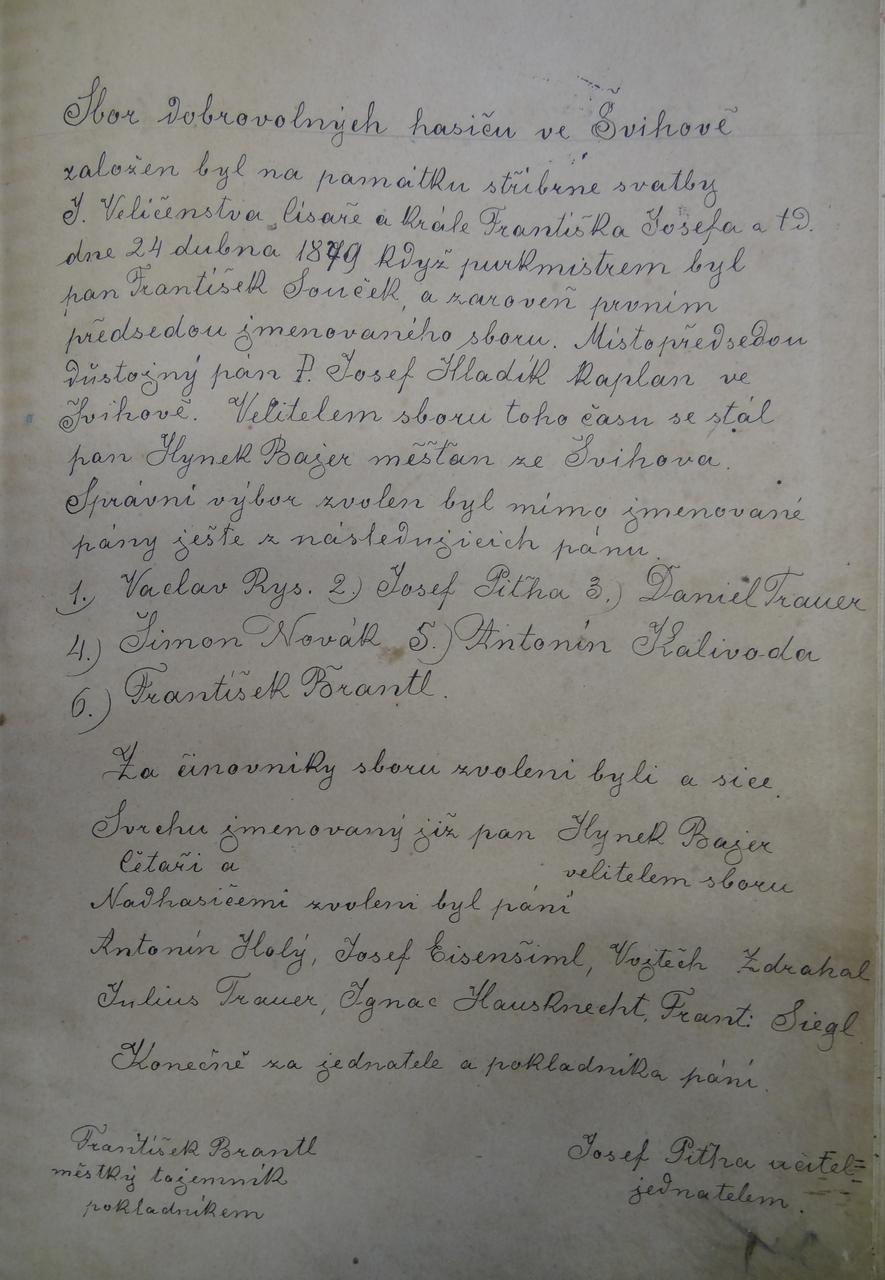 Sbor dobrovolných hasičů ve Švihově
založen byl na památku stříbrné svatby
J. Veličenstva císaře a krále Františka Josefa a td.
dne 24 dubna 1879 když purkmistrem byl
pan František Souček, a zaroveň prvním
předsedou jmenovaného sboru. Místopředsedou
důstojný pán P. Josef Hladík kaplan ve
Švihově. Velitelem sboru toho času se stál
pan Hynek Bajer měšťan ze Švihova.
Správní výbor zvolen byl mimo jmenované
pány ješte z následujicich pánu.
1.) Vaclav Rys. 2.) Josef Pitha 3.) Daniel Trauer
4.) Šimon Novák 5.) Antonín Kalivoda
6.) František Brantl.
Za činovniky sboru zvoleni byli a sice.
Svrchu jmenovaný již pan Hynek Bajer
četaři a velitelem sboru
Nadhasičemi zvoleni byl páni
Antonín Holý, Josef Eisenšiml, Vojtěch Zdrahal
Julius Trauer, Ignac Hausknecht, Frant: Siegl
Konečně za jednatele a pokladníka páni.
František Brantl
městký tajemník
pokladníkem
Josef Pitha učitel
jednatelem.